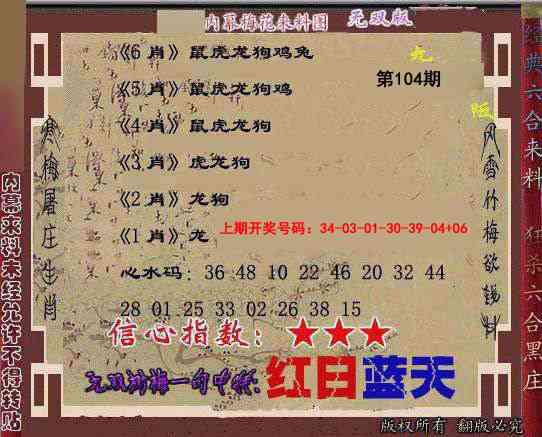 内幕梅花来料图 无双版
《6 肖》鼠虎龙狗鸡兔
《5 肖》鼠虎龙狗鸡
第104期
《4 肖》鼠虎龙狗
《3 肖》虎龙狗
《2 肖》龙狗
上期开奖号码：34-03-01-30-39-04+06
《1 肖》龙
心水码：36 48 10 22 46 20 32 44
28 01 25 33 02 26 38 15
信心指数：★★★
一句中特：红日蓝天
版权所有 翻版必究
寒梅屠庄生肖
风雪竹梅欲
内幕来料未经允许不得转贴
经典六合来料
狂杀六合黑庄